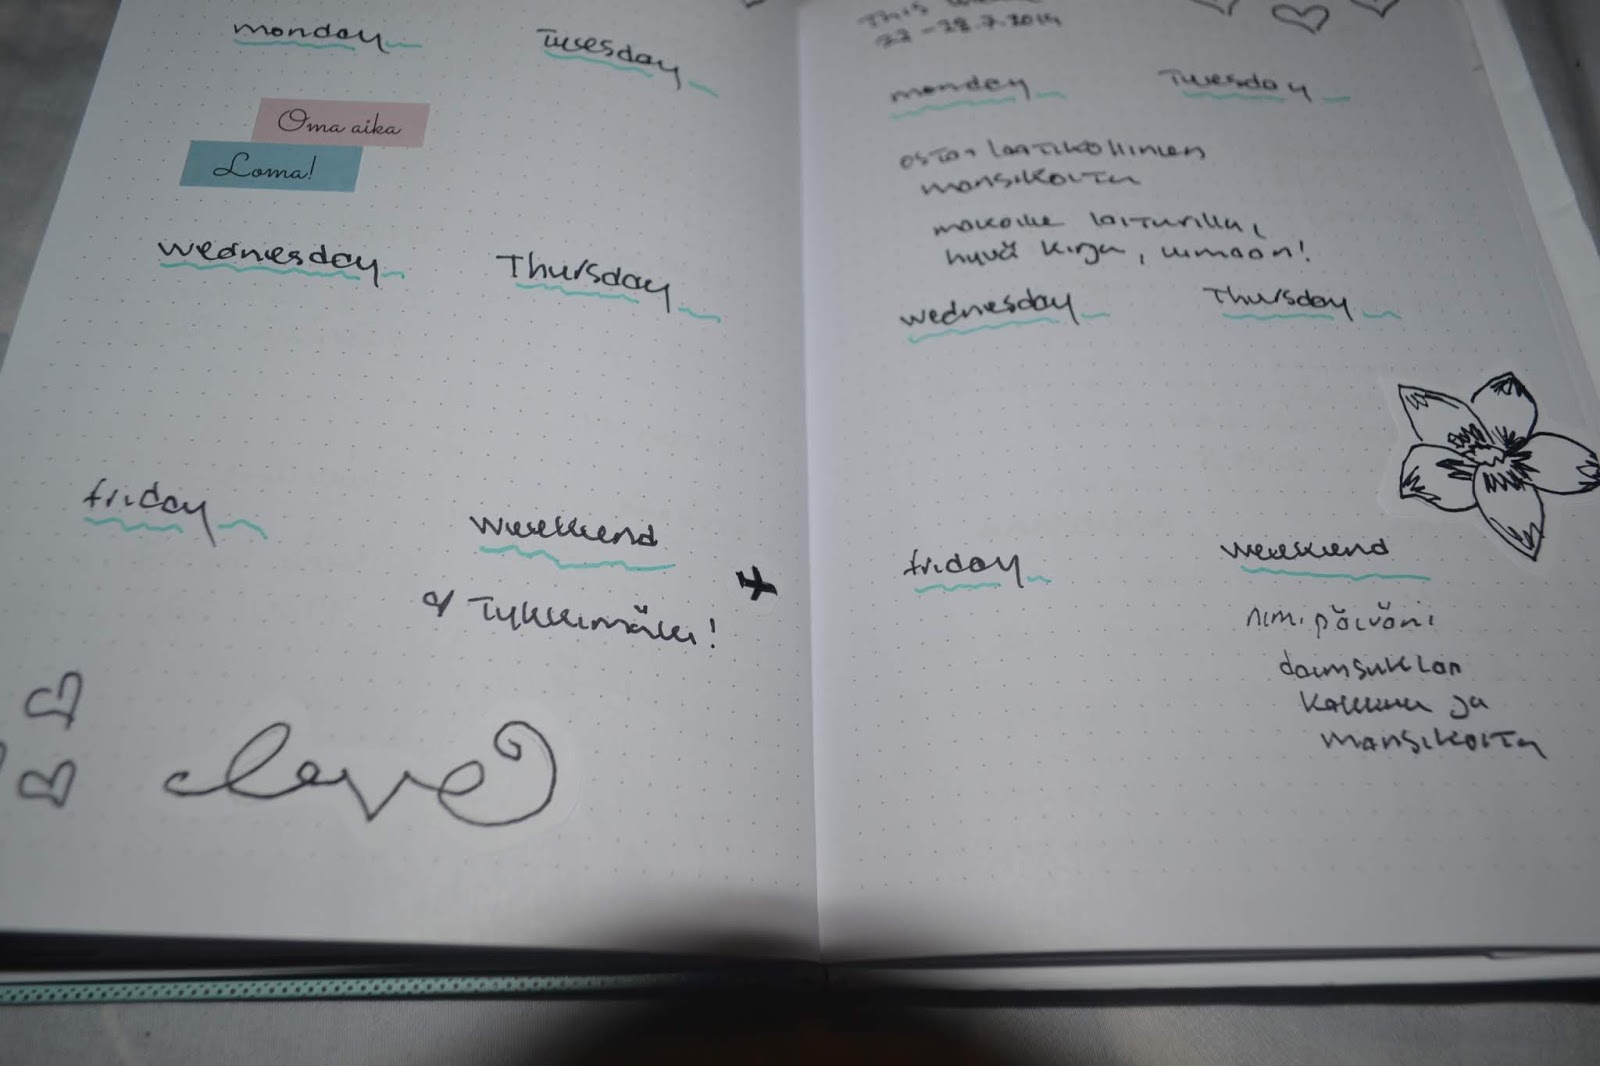 monday
Tuesday
Oma aika
Loma!
wednesday
Thursday
friday
weekend
Tykkimäki!
love
This
22-28.7.2019
monday
Tuesday
ostaa laatikollinen
mansikoita
makoilu laiturilla,
hyvä kirja, uimaan!
wednesday
Thursday
friday
weekend
nimipäiväni
daimsuklaa
kakkua ja
mansikoita